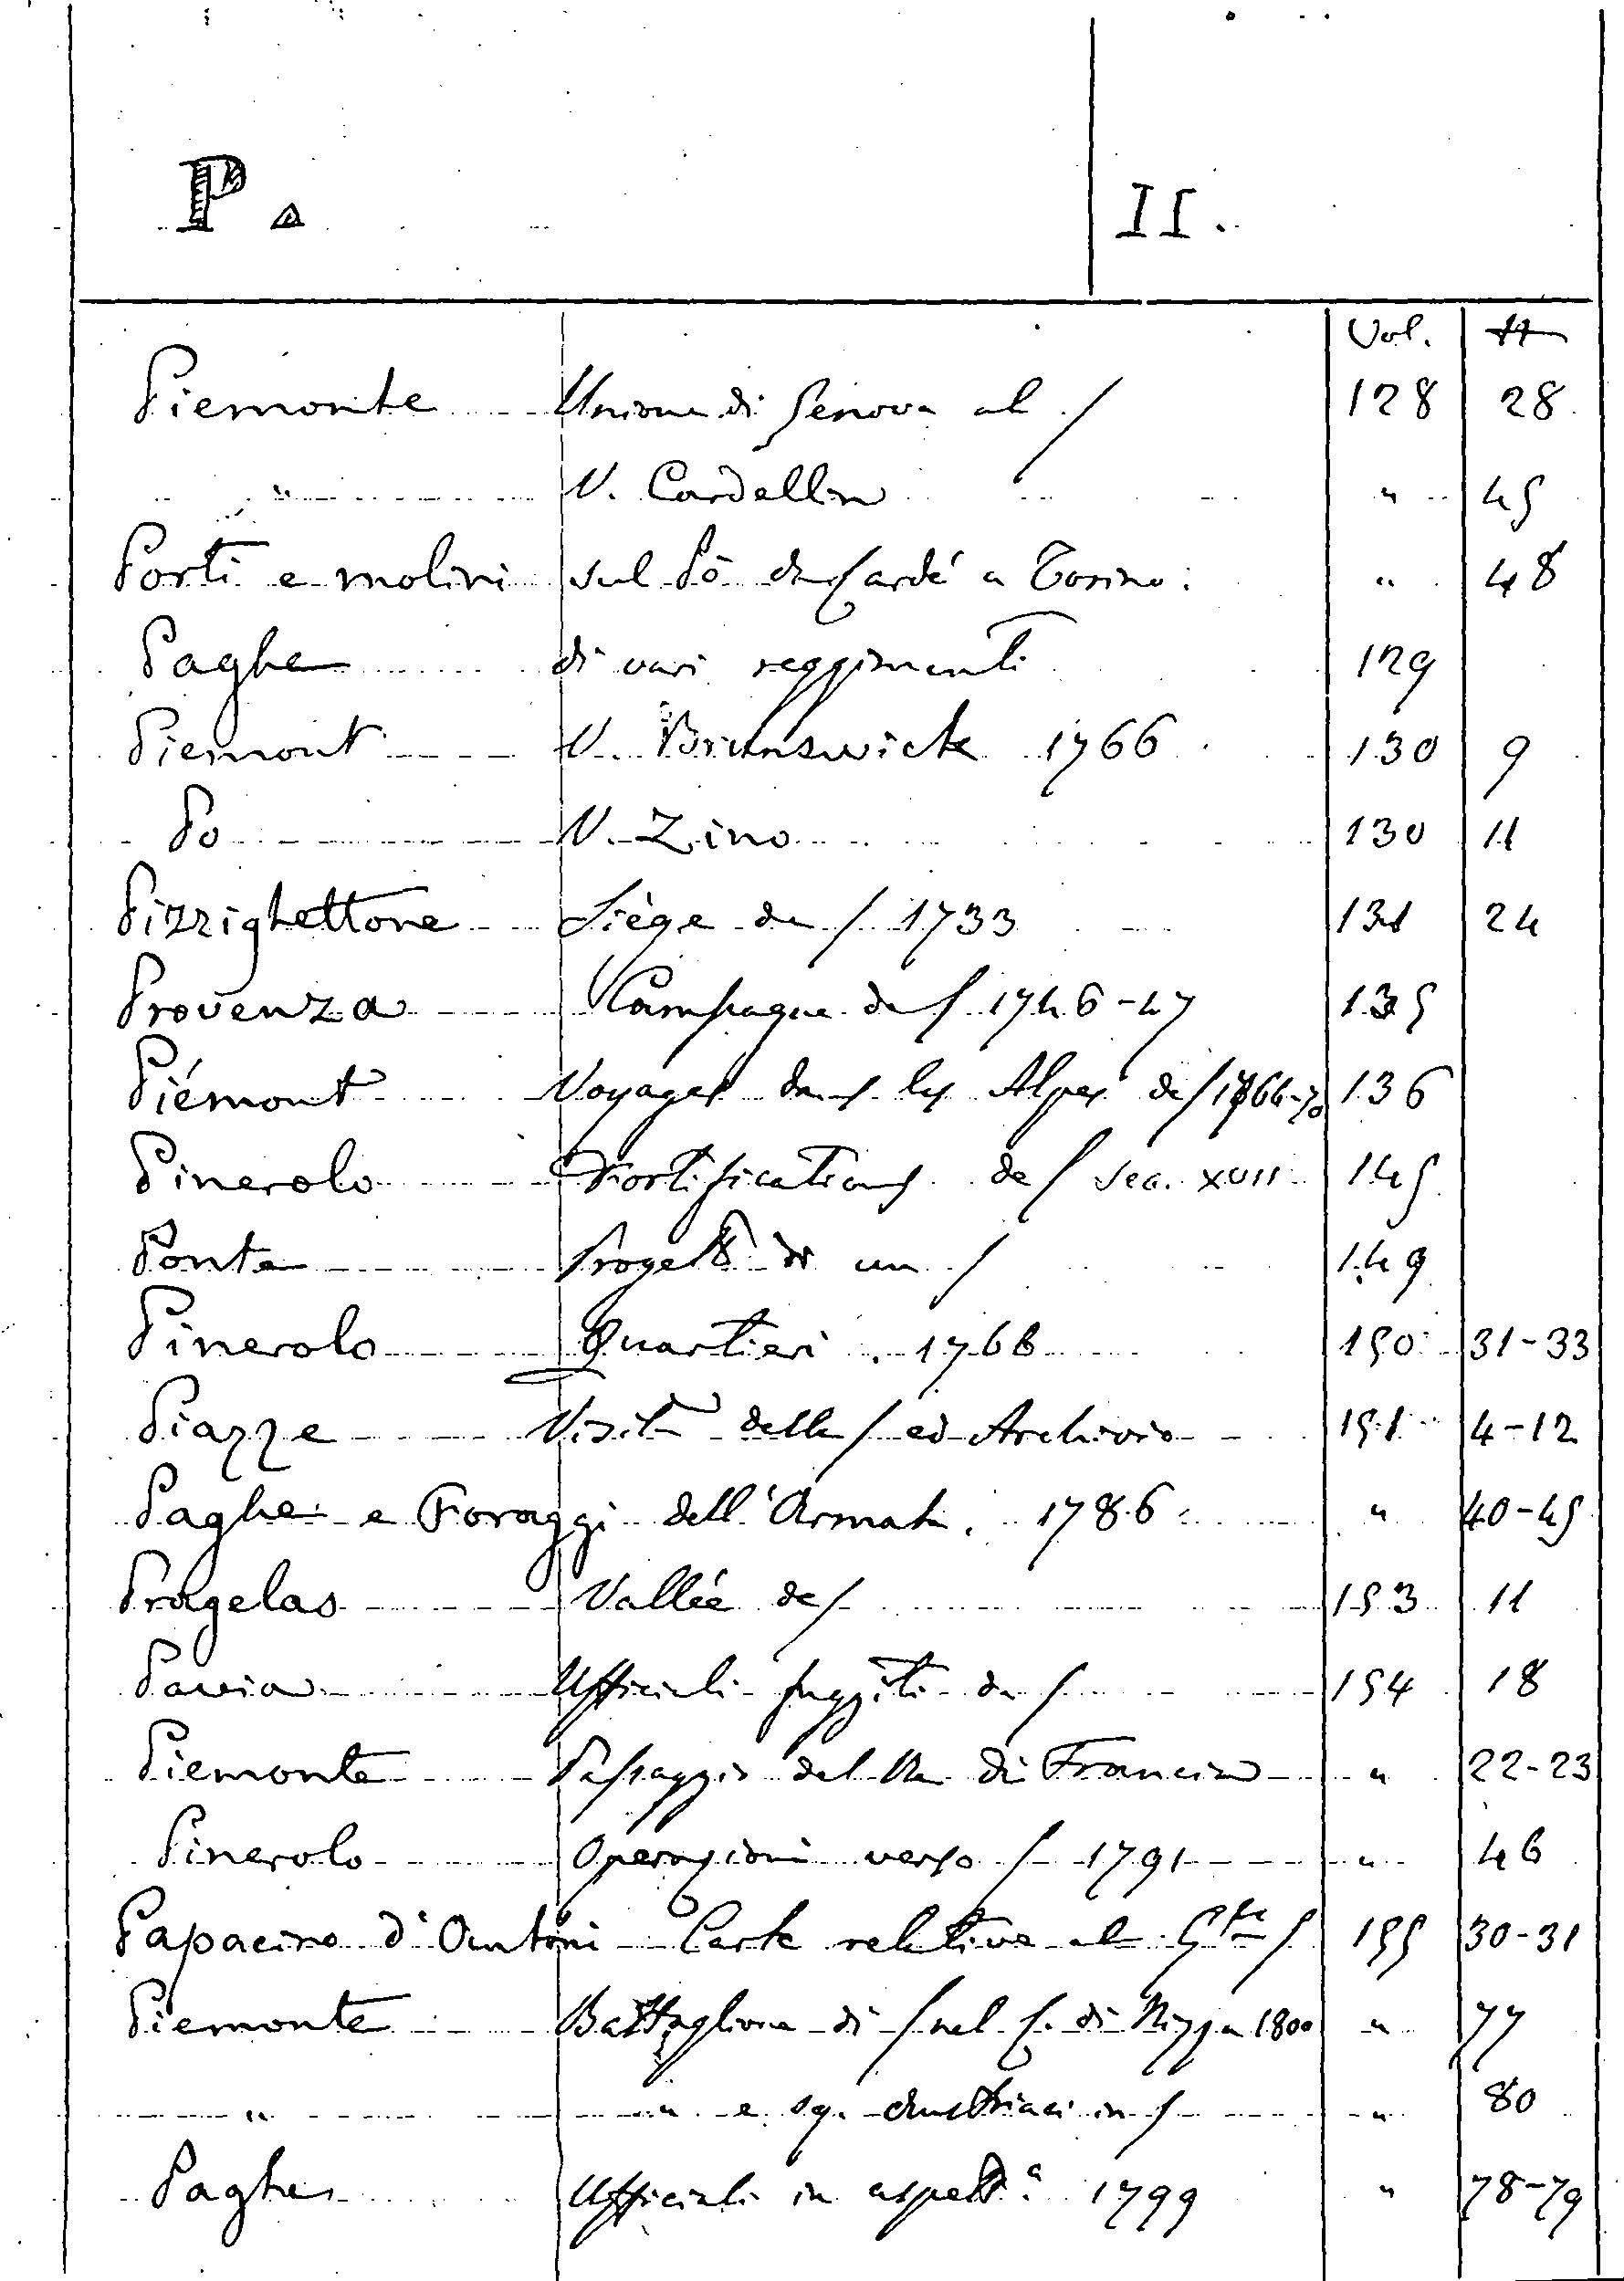 P. II.
Vol. ff
Piemonte Unione di Genova al / 128 28
" V. Cardellin " 45
Porti e molini sul Pò da Cardé a Torino. " 48
Paghe di vari reggimenti 129
Piemont V. Brunswick 1766 130 9
Po V. Zino 130 11
Pizzighettone Siège de / 1733 131 24
Provenza Campagne de / 1746-47 135
Piémont Voyages dans les Alpes de / 1766-70 136
Pinerolo Fortifications de / sec. XVII 145
Ponte Progetto di un / 149
Pinerolo Quartieri. 1768 150 31-33
Piazze Visita delle / ed Archivio 151 4-12
Paghe e Foraggi dell'Armata. 1786 " 40-45
Pragelas Vallée de / 153 11
Pavia Ufficiali fuggiti da / 154 18
Piemonte Passaggio del Re di Francia " 22-23
Pinerolo Operazioni verso / 1791 " 46
Papacino d'Antoni Carte relative al Cte / 155 30-31
Piemonte Battaglione di / nel C. di Nizza 1800 " 77
" " e sq. Austriaci in / " 80
Paghe Ufficiali in aspett.a 1799 " 78-79